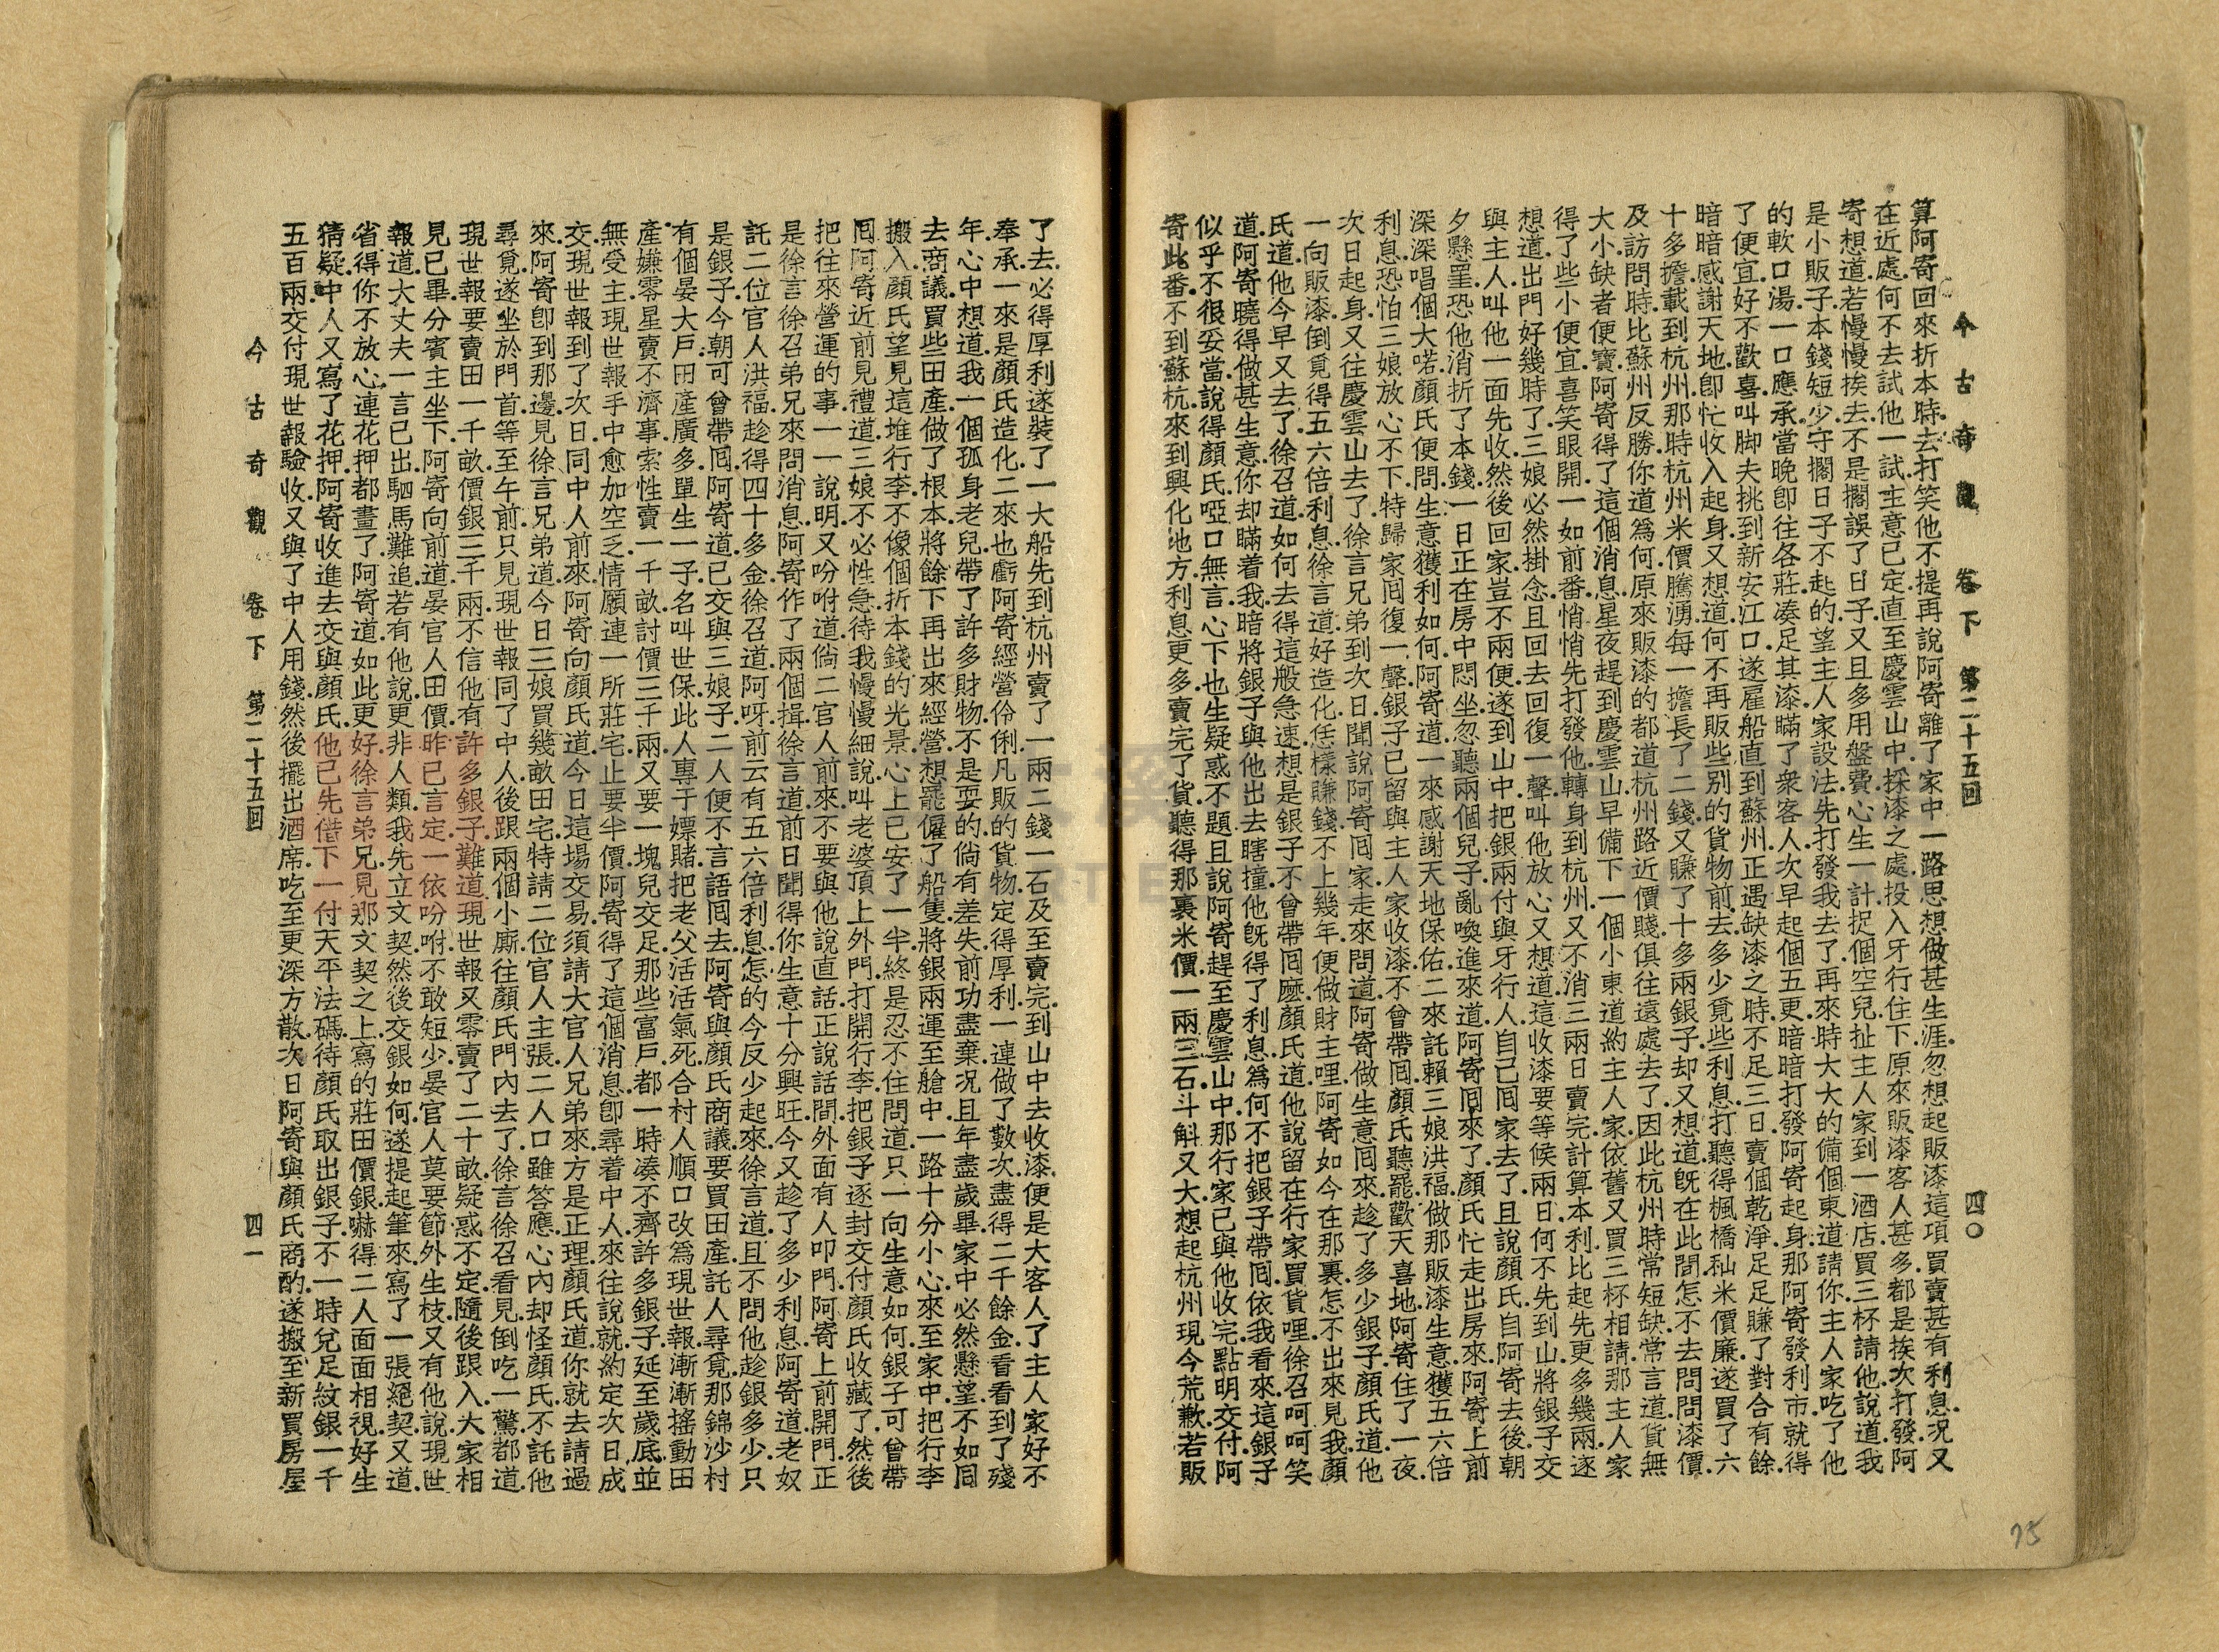 今古奇觀 卷下 第二十五回 四〇
算阿寄回來折本時去打笑他不提再說阿寄離了家中一路思想做甚生涯忽想起販漆這項買賣甚有利息況又
在近處何不去試他一試主意已定直至慶雲山中採漆之處投入牙行住下原來販漆客人甚多都是挨次打發阿
寄想道若慢慢挨去不是擱誤了日子又且多用盤費心生一計捉個空兒扯主人家到一酒店買三杯請他說道我
是小販子本錢短少守擱日子不起的望主人家設法先打發我去了再來時大大的備個東道請你主人家吃了他
的軟口湯一口應承當晚卽往各莊凑足其漆瞞了衆客人次早起個五更暗暗打發阿寄起身那阿寄發利市就得
了便宜好不歡喜叫脚夫挑到新安江口遂雇船直到蘇州正遇缺漆之時不足三日賣個乾淨足足賺了對合有餘
暗暗感謝天地卽忙收入起身又想道何不再販些别的貨物前去多少覓些利息打聽得楓橋秈米價廉遂買了六
十多擔載到杭州那時杭州米價騰湧每一擔長了二錢又賺了十多兩銀子却又想道旣在此間怎不去問問漆價
及訪問時比蘇州反勝你道爲何原來販漆的都道杭州路近價賤俱往遠處去了因此杭州時常短缺常言道貨無
大小缺者便寶阿寄得了這個消息星夜趕到慶雲山早備下一個小東道約主人家依舊又買三杯相請那主人家
得了些小便宜喜笑眼開一如前番悄悄先打發他轉身到杭州又不消三兩日賣完計算本利比起先更多幾兩逐
想道出門好幾時了三娘必然掛念且回去回復一聲叫他放心又想道這收漆要等候兩日何不先到山將銀子交
與主人叫他一面先收然後回家豈不兩便遂到山中把銀兩付與牙行人自己囘家去了且說顏氏自阿寄去後朝
夕懸罣恐他消折了本錢一日正在房中悶坐忽聽兩個兒子亂喚進來道阿寄囘來了顏氏忙走出房來阿寄上前
深深唱個大喏顏氏便問生意獲利如何阿寄道一來感謝天地保佑二來託賴三娘洪福做那販漆生意獲五六倍
利息恐怕三娘放心不下特歸家囘復一聲銀子已留與主人家收漆不曾帶囘顏氏聽罷歡天喜地阿寄住了一夜
次日起身又往慶雲山去了徐言兄弟到次日聞說阿寄囘家走來問道阿寄做生意囘來趁了多少銀子顏氏道他
一向販漆倒覓得五六倍利息徐言道好造化恁樣賺錢不上幾年便做財主哩阿寄如今在那裏怎不出來見我顏
氏道他今早又去了徐召道如何去得這般急速想是銀子不曾帶囘麽顏氏道他說留在行家買貨哩徐召呵呵笑
道阿寄曉得做甚生意你却瞞着我暗將銀子與他出去瞎撞他旣得了利息爲何不把銀子帶囘依我看來這銀子
似乎不很妥當說得顏氏啞口無言心下也生疑惑不題且說阿寄趕至慶雲山中那行家已與他收完點明交付阿
寄此番不到蘇杭來到興化地方利息更多賣完了貨聽得那裏米價一兩三石斗斛又大想起杭州現今荒歉若販
了去必得厚利遂裝了一大船先到杭州賣了一兩二錢一石及至賣完到山中去收漆便是大客人了主人家好不
奉承一來是顏氏造化二來也虧阿寄經營伶俐凡販的貨物定得厚利一連做了數次盡得二千餘金看看到了殘
年心中想道我一個孤身老兒帶了許多財物不是耍的倘有差失前功盡棄況且年盡歲畢家中必然懸望不如囘
去商議買些田產做了根本將餘下再出來經營想罷僱了船隻將銀兩運至艙中一路十分小心來至家中把行李
搬入顏氏望見這堆行李不像個折本錢的光景心上已安了一半終是忍不住問道只一向生意如何銀子可曾帶
囘阿寄近前見禮道三娘不必性急待我慢慢細說叫老婆頂上外門打開行李把銀子逐封交付顏氏收藏了然後
把往來營運的事一一說明又吩咐道倘二官人前來不要與他說直話正說話間外面有人叩門阿寄上前開門正
是徐言徐召弟兄來問消息阿寄作了兩個揖徐言道前日聞得你生意十分興旺今又趁了多少利息阿寄道老奴
託二位官人洪福趁得四十多金徐召道阿呀前云有五六倍利息怎的今反少起來徐言道且不問他趁銀多少只
是銀子今朝可曾帶囘阿寄道已交與三娘子二人便不言語囘去阿寄與顏氏商議要買田產託人尋覓那錦沙村
有個晏大戶田產廣多單生一子名叫世保此人專于嫖賭把老父活活氣死合村人順口改爲現世報漸漸搖動田
產嫌零星賣不濟事索性賣一千畝討價三千兩又要一塊兒交足那些富戶都一時凑不齊許多銀子延至歲底並
無受主現世報手中愈加空乏情願連一所莊宅止要半價阿寄得了這個消息卽尋着中人來往說就約定次日成
交現世報到了次日同中人前來阿寄向顏氏道今日這場交易須請大官人兄弟來方是正理顏氏道你就去請過
來阿寄卽到那邊見徐言兄弟道今日三娘買幾畝田宅特請二位官人主張二人口雖答應心內却怪顏氏不託他
尋覓遂坐於門首等至午前只見現世報同了中人後跟兩個小廝往顏氏門內去了徐言徐召看見倒吃一驚都道
現世報要賣田一千畝價銀三千兩不信他有許多銀子難道現世報又零賣了二十畝疑惑不定隨後跟入大家相
見已畢分賓主坐下阿寄向前道晏官人田價昨已言定一依吩咐不敢短少晏官人莫要節外生枝又有他說現世
報道大丈夫一言已出駟馬難追若有他說更非人類我先立文契然後交銀如何遂提起筆來寫了一張絕契又道
省得你不放心連花押都畫了阿寄道如此更好徐言弟兄見那文契之上寫的莊田價銀嚇得二人面面相視好生
猜疑中人又寫了花押阿寄收進去交與顏氏他已先借下一付天平法碼待顏氏取出銀子不一時兌足紋銀一千
五百兩交付現世報驗收又與了中人用錢然後擺出酒席吃至更深方散次日阿寄與顏氏商酌遂搬至新買房屋
今古奇觀 卷下 第二十五回 四一
75